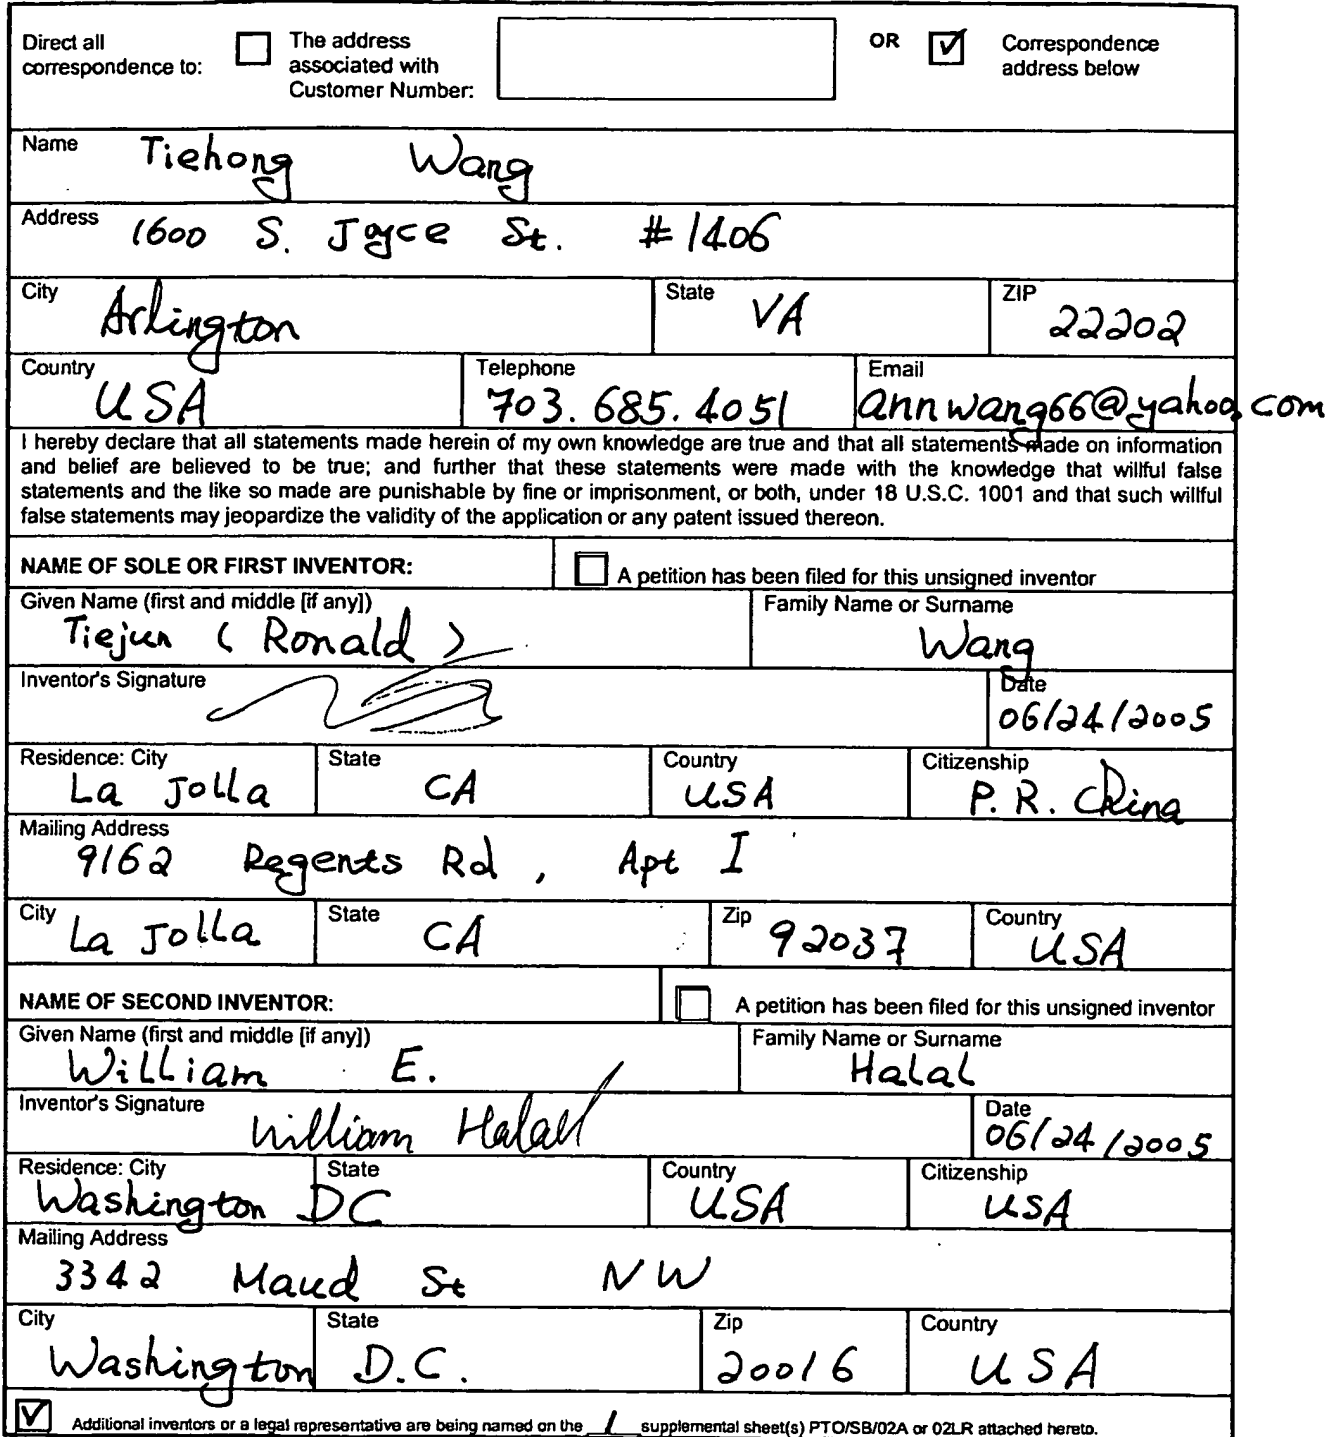 Direct all The address OR Correspondence
correspondence to: associated with address below
Customer Number:
Name Tiehong Wang
Address 1600 S. Joyce St. #1406
City Arlington State VA ZIP 22202
Country USA Telephone 703.685.4051 Email annwang66@yahoo.com
I hereby declare that all statements made herein of my own knowledge are true and that all statements made on information
and belief are believed to be true; and further that these statements were made with the knowledge that willful false
statements and the like so made are punishable by fine or imprisonment, or both, under 18 U.S.C. 1001 and that such willful
false statements may jeopardize the validity of the application or any patent issued thereon.
NAME OF SOLE OR FIRST INVENTOR: A petition has been filed for this unsigned inventor
Given Name (first and middle [if any]) Family Name or Surname
Tiejun (Ronald) Wang
Inventor's Signature Date
06/24/2005
Residence: City State Country Citizenship
La Jolla CA USA P.R. China
Mailing Address
9162 Regents Rd, Apt I
City La Jolla State CA Zip 92037 Country USA
NAME OF SECOND INVENTOR: A petition has been filed for this unsigned inventor
Given Name (first and middle [if any]) Family Name or Surname
William E. Halal
Inventor's Signature William Halal Date
06/24/2005
Residence: City State Country Citizenship
Washington DC USA USA
Mailing Address
3342 Maud St NW
City State Zip Country
Washington D.C. 20016 USA
Additional inventors or a legal representative are being named on the 1 supplemental sheet(s) PTO/SB/02A or 02LR attached hereto.